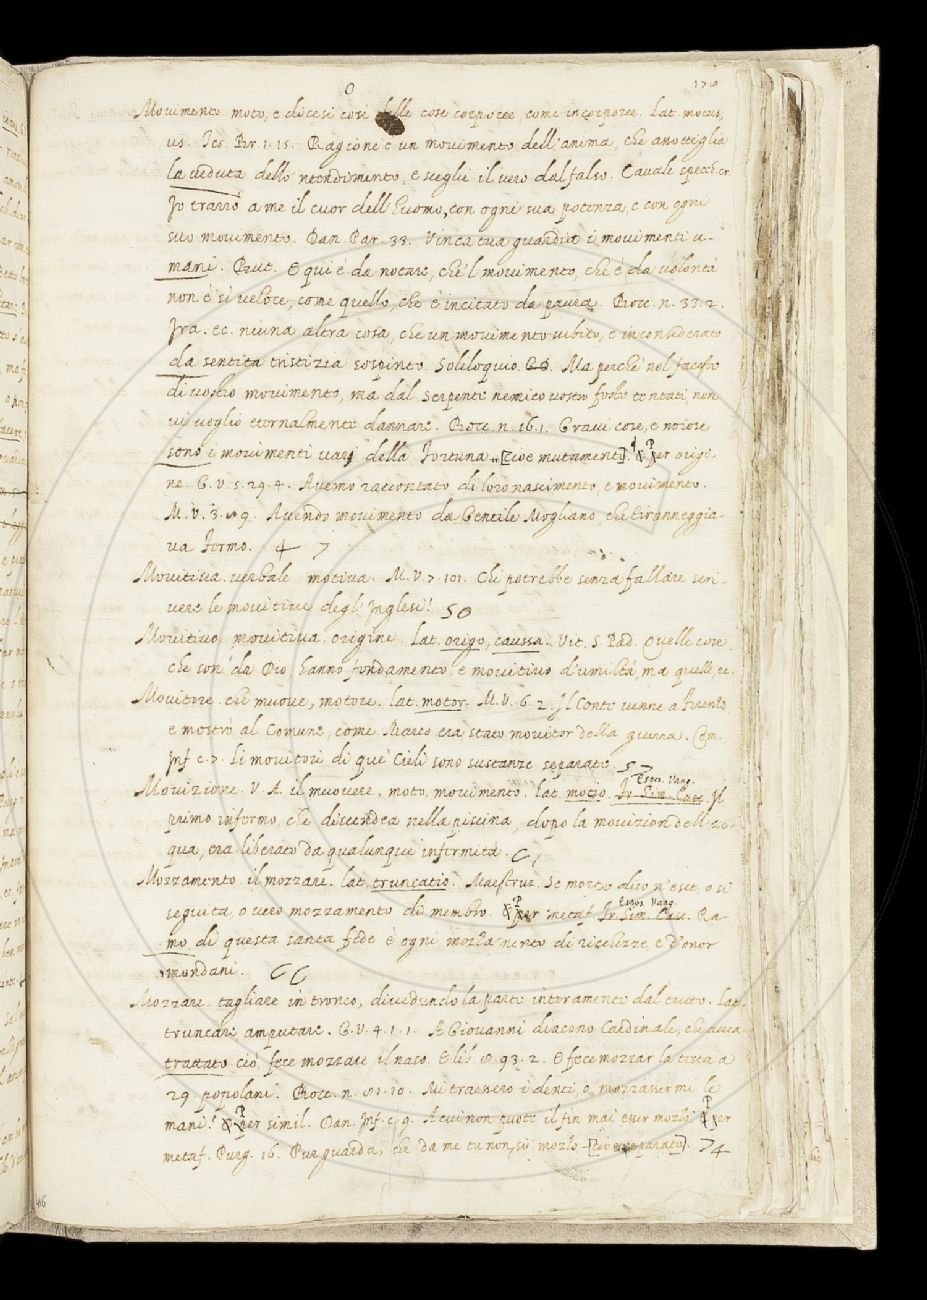 O
Movimento. moto, e dicesi così delle cose corporee, come incorporee. Lat. motus,
us. Tes. Br. 1. 15. Ragione è un movimento dell'anima, che assottiglia
la veduta dello 'ntendimento, e sceglie il vero dal falso. Cavalc. specch. cr.
Io trarrò a me il cuor dell'Euomo, con ogni sua potenza, e con ogni
suo movimento. Dan. Par. 33. Vinca tua guardia i movimenti u-
mani. But. E qui è da notare, che 'l movimento, che è da volontà
non è sì veloce, come quello, che è incitato da paura. Bocc. n. 33. 2.
Ira. ec. niuna altra cosa, che un movimento subito, e inconsiderato
da sentita tristizia sospinto. Soliloquio. Ma perchè nol faceste
di vostro movimento, ma dal Serpente nemico vostro foste tentati, non
vi voglio eternalmente dannare. Bocc. n. 16. 1. Gravi cose, e noiose
sono i movimenti varj della Fortuna. [cioè mutamenti]. ¶ Per origi-
ne. G. V. 5. 29. 4. Avemo raccontato di loro nascimento, e movimento.
M. V. 3. 89. Avendo movimento da Gentile Mogliano, che tiranneggia-
va Fermo. 4 7
Movitiva. verbale. motiva. M. V. 7. 101. Chi potrebbe senza fallare scri-
vere le movitive degl'Inglesi! 50
Movitivo. movitiva, origine. Lat. origo, caussa. Vit. S. Pad. Quelle cose
che son da Dio hanno fondamento, e movitivo d'umiltà, ma quelle, ec.
Movitore. che muove, motore. Lat. motor. M. V. 6. 2. Il Conte venne a Firenze,
e mostrò al Comune, come Marco era stato movitor della guerra. Com.
Inf. c. 7. Li movitori di que' Cieli sono sustanze separate. 57
Espos. Vang.
Movizione. V. A. il muovere, moto, movimento. Lat. motio. Fr. Sim. Casc. Il
primo infermo, che discendea nella piscina, dopo la movizion dell'ac-
qua, era liberato da qualunque infermità.
Mozzamento. il mozzare. Lat. truncatio. Maestruz. Se morte dico n'esce, o si
Espos. Vang.
seguita, o vero mozzamento di membro. ¶ Per metaf. Fr. Sim. Casc. Ra-
mo di questa santa fede è ogni mozzamento di ricchezze, e d'onor
mondani. 66
Mozzare. tagliare in tronco, dividendo la parte interamente dal tutto. Lat.
truncare amputare. G. V. 4. 1. 1. A Giovanni diacono Cardinale, che avea
trattato ciò, fece mozzare il naso. E lib. 8. 93. 2. E fece mozzar la testa a
29. popolani. Bocc. n. 81. 10. Mi traessero i denti, o mozzasermi le
mani! ¶ Per simil. Dan. Inf. c. 9. A cui non puote il fin mai esser mozzo. ¶ Per
metaf. Purg. 16. Pur guarda, che da me tu non sii mozzo [cioè separato]. 74